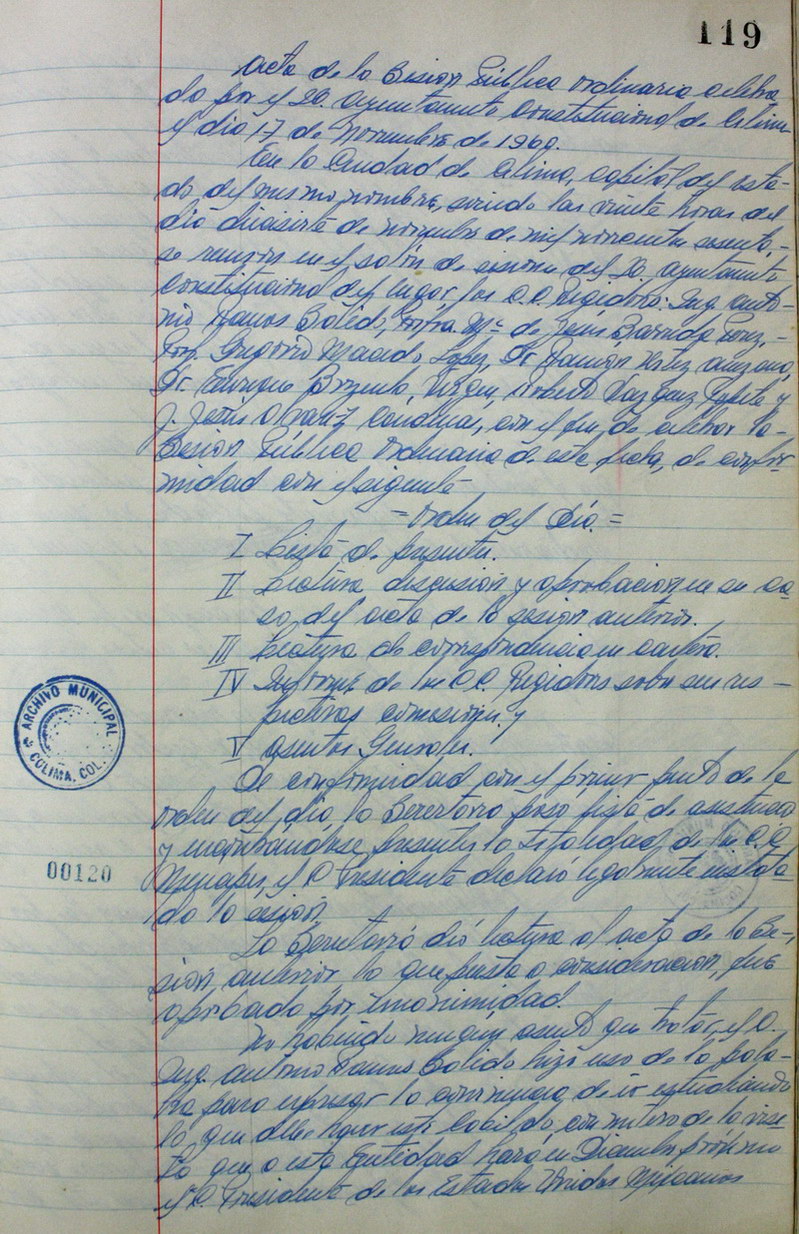 119
Acta de la Sesión Pública Ordinaria celebra-
da por el H. Ayuntamiento Constitucional de Colima
el día 17 de Noviembre de 1960.
En la Ciudad de Colima, capital del esta-
do del mismo nombre, siendo las veinte horas del
día diecisiete de noviembre de mil novecientos sesenta,-
se reunió en el salón de sesiones del H. Ayuntamiento
Constitucional del lugar, los C.C. Regidores: Ing. Anto-
nio Ramos Salido, Profra. Ma. de Jesús
Prof. Gregorio Macedo López, Dr. Ramón
Dr. Enrique Brizuela Virgen, Roberto Vázquez y
J. Jesús con el fin de celebrar la-
Sesión Pública Ordinaria de esta fecha, de confor-
midad con el siguiente
=Orden del Día.=
I Lista de presentes.
II Lectura discusión y aprobación en su ca-
so, del acta de la sesión anterior.
III Lectura de correspondencia en cartera.
IV Informe de los C.C. Regidores sobre sus res-
pectivas comisiones y
V Asuntos Generales.
De conformidad con el primer punto de la
orden del día, la Secretaría pasó lista de asistencia
y encontrándose presentes la totalidad de los C.C.
Munícipes, el C. Presidente declaró legalmente instala-
da la sesión.
La Secretaría dió lectura al acta de la Se-
sión anterior la que puesta a consideración, fue
aprobada por unanimidad.
No habiendo ningún asunto que tratar, el C.
Ing. Antonio Ramos Salido hizo uso de la pala-
bra para expresar la conveniencia de ir estudiando
lo que debe hacer este Cabildo, con motivo de la visi-
ta que a esta Entidad hará en Diciembre próximo
el C. Presidente de los Estados Unidos Mexicanos
ARCHIVO MUNICIPAL
COLIMA, COL.
00120